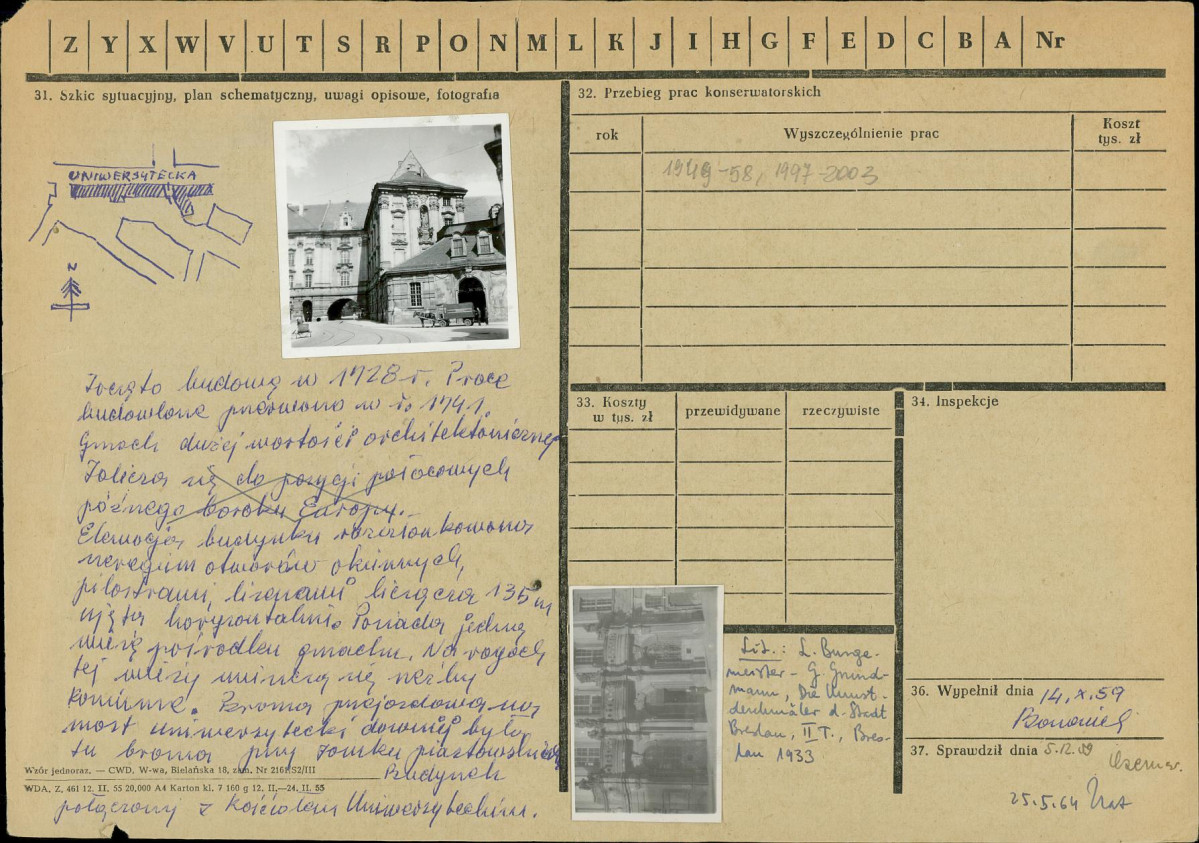 Z Y X W V U T S R P O N M L K J I H G F E D C B A Nr
31. Szkic sytuacyjny, plan schematyczny, uwagi opisowe, fotografia
UNIWERSYTECKA
N
Zaczęto budową w 1728 r. Prace
budowlane przerwano w r. 1741.
Gmach dużej wartości architektonicznej
Zalicza się do pozycji pałacowych
późnego baroku Europy.
Elewacja budynku rozczłonkowana
szeregiem otworów okiennych,
pilastrami, lizenami licząca 135 m
ujęta horyzontalnie Posiada jedną
wieżę pośrodku gmachu. Na rogach
tej wieży umieszczą się rzeźby
kamienne. Brama przejazdowa na
most uniwersytecki dawniej była
to brama przy zamku piastowskim
Budynek
połączony z Kościołem Uniwersyteckim.
Wzór jednoraz. — CWD, W-wa, Bielańska 18, zam. Nr 2161/S2/III
WDA, Z, 461 12. II, 55 20,000 A4 Karton kl. 7 160 g 12. II,—24. II. 55
32. Przebieg prac konserwatorskich
rok
Wyszczególnienie prac
Koszt
tys. zł
1949-58, 1997-2003
33. Koszty
w tys. zł
przewidywane
rzeczywiste
34. Inspekcje
Lit.: L. Burge-
meister - G. Grund-
mann, Die Kunst-
denkmäler d. Stadt
Breslau, II T., Bres-
lau 1933
36. Wypełnił dnia 14.X.59
37. Sprawdził dnia 5.12.59
25.5.64